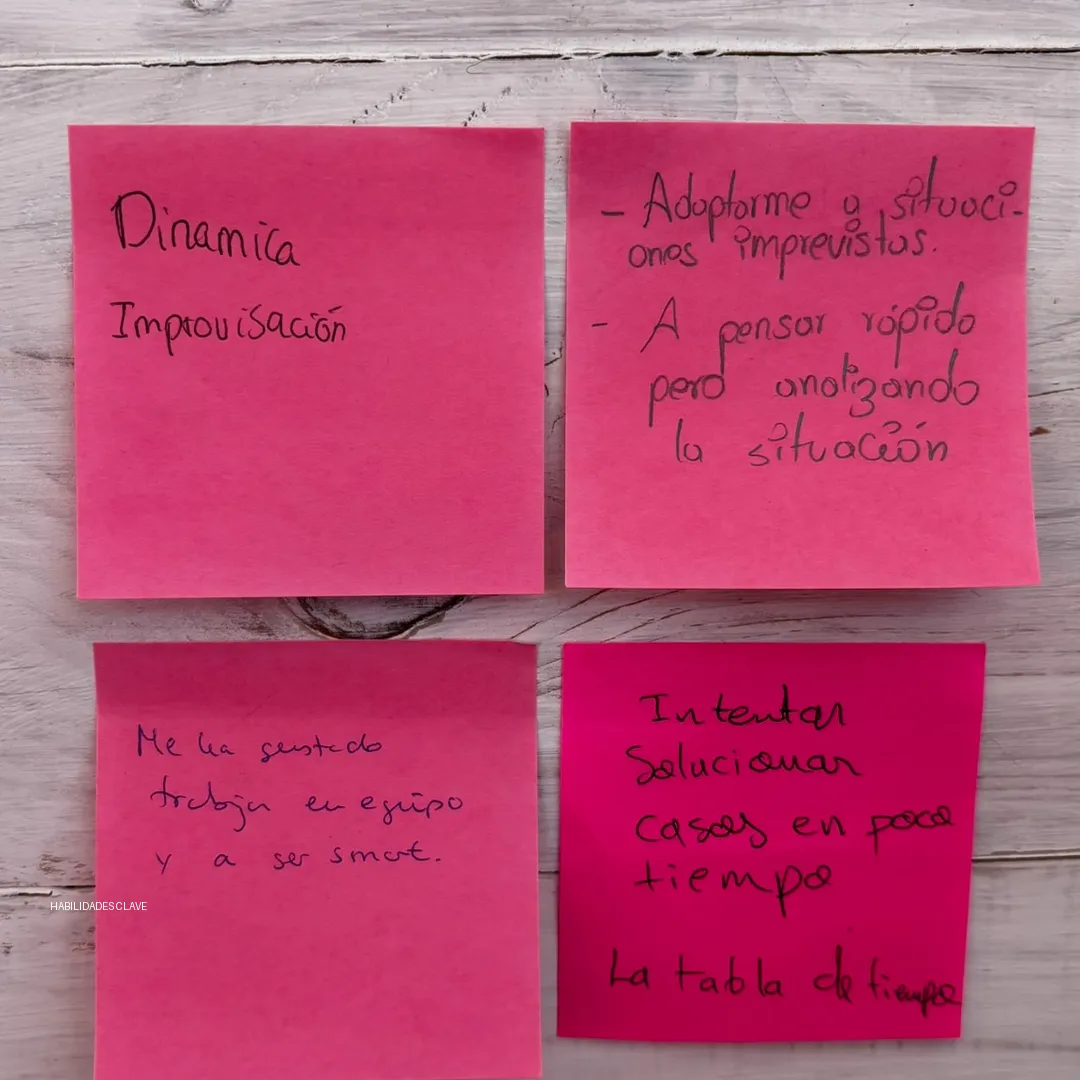 Dinamica
Improvisación
- Adaptarme a situaci-
ones imprevistas.
- A pensar rápido
pero analizando
la situación
Me ha gustado
trabajar en equipo
y a ser smart.
Intentar
Solucionar
casos en poco
tiempo
La tabla de tiempo
HABILIDADESCLAVE